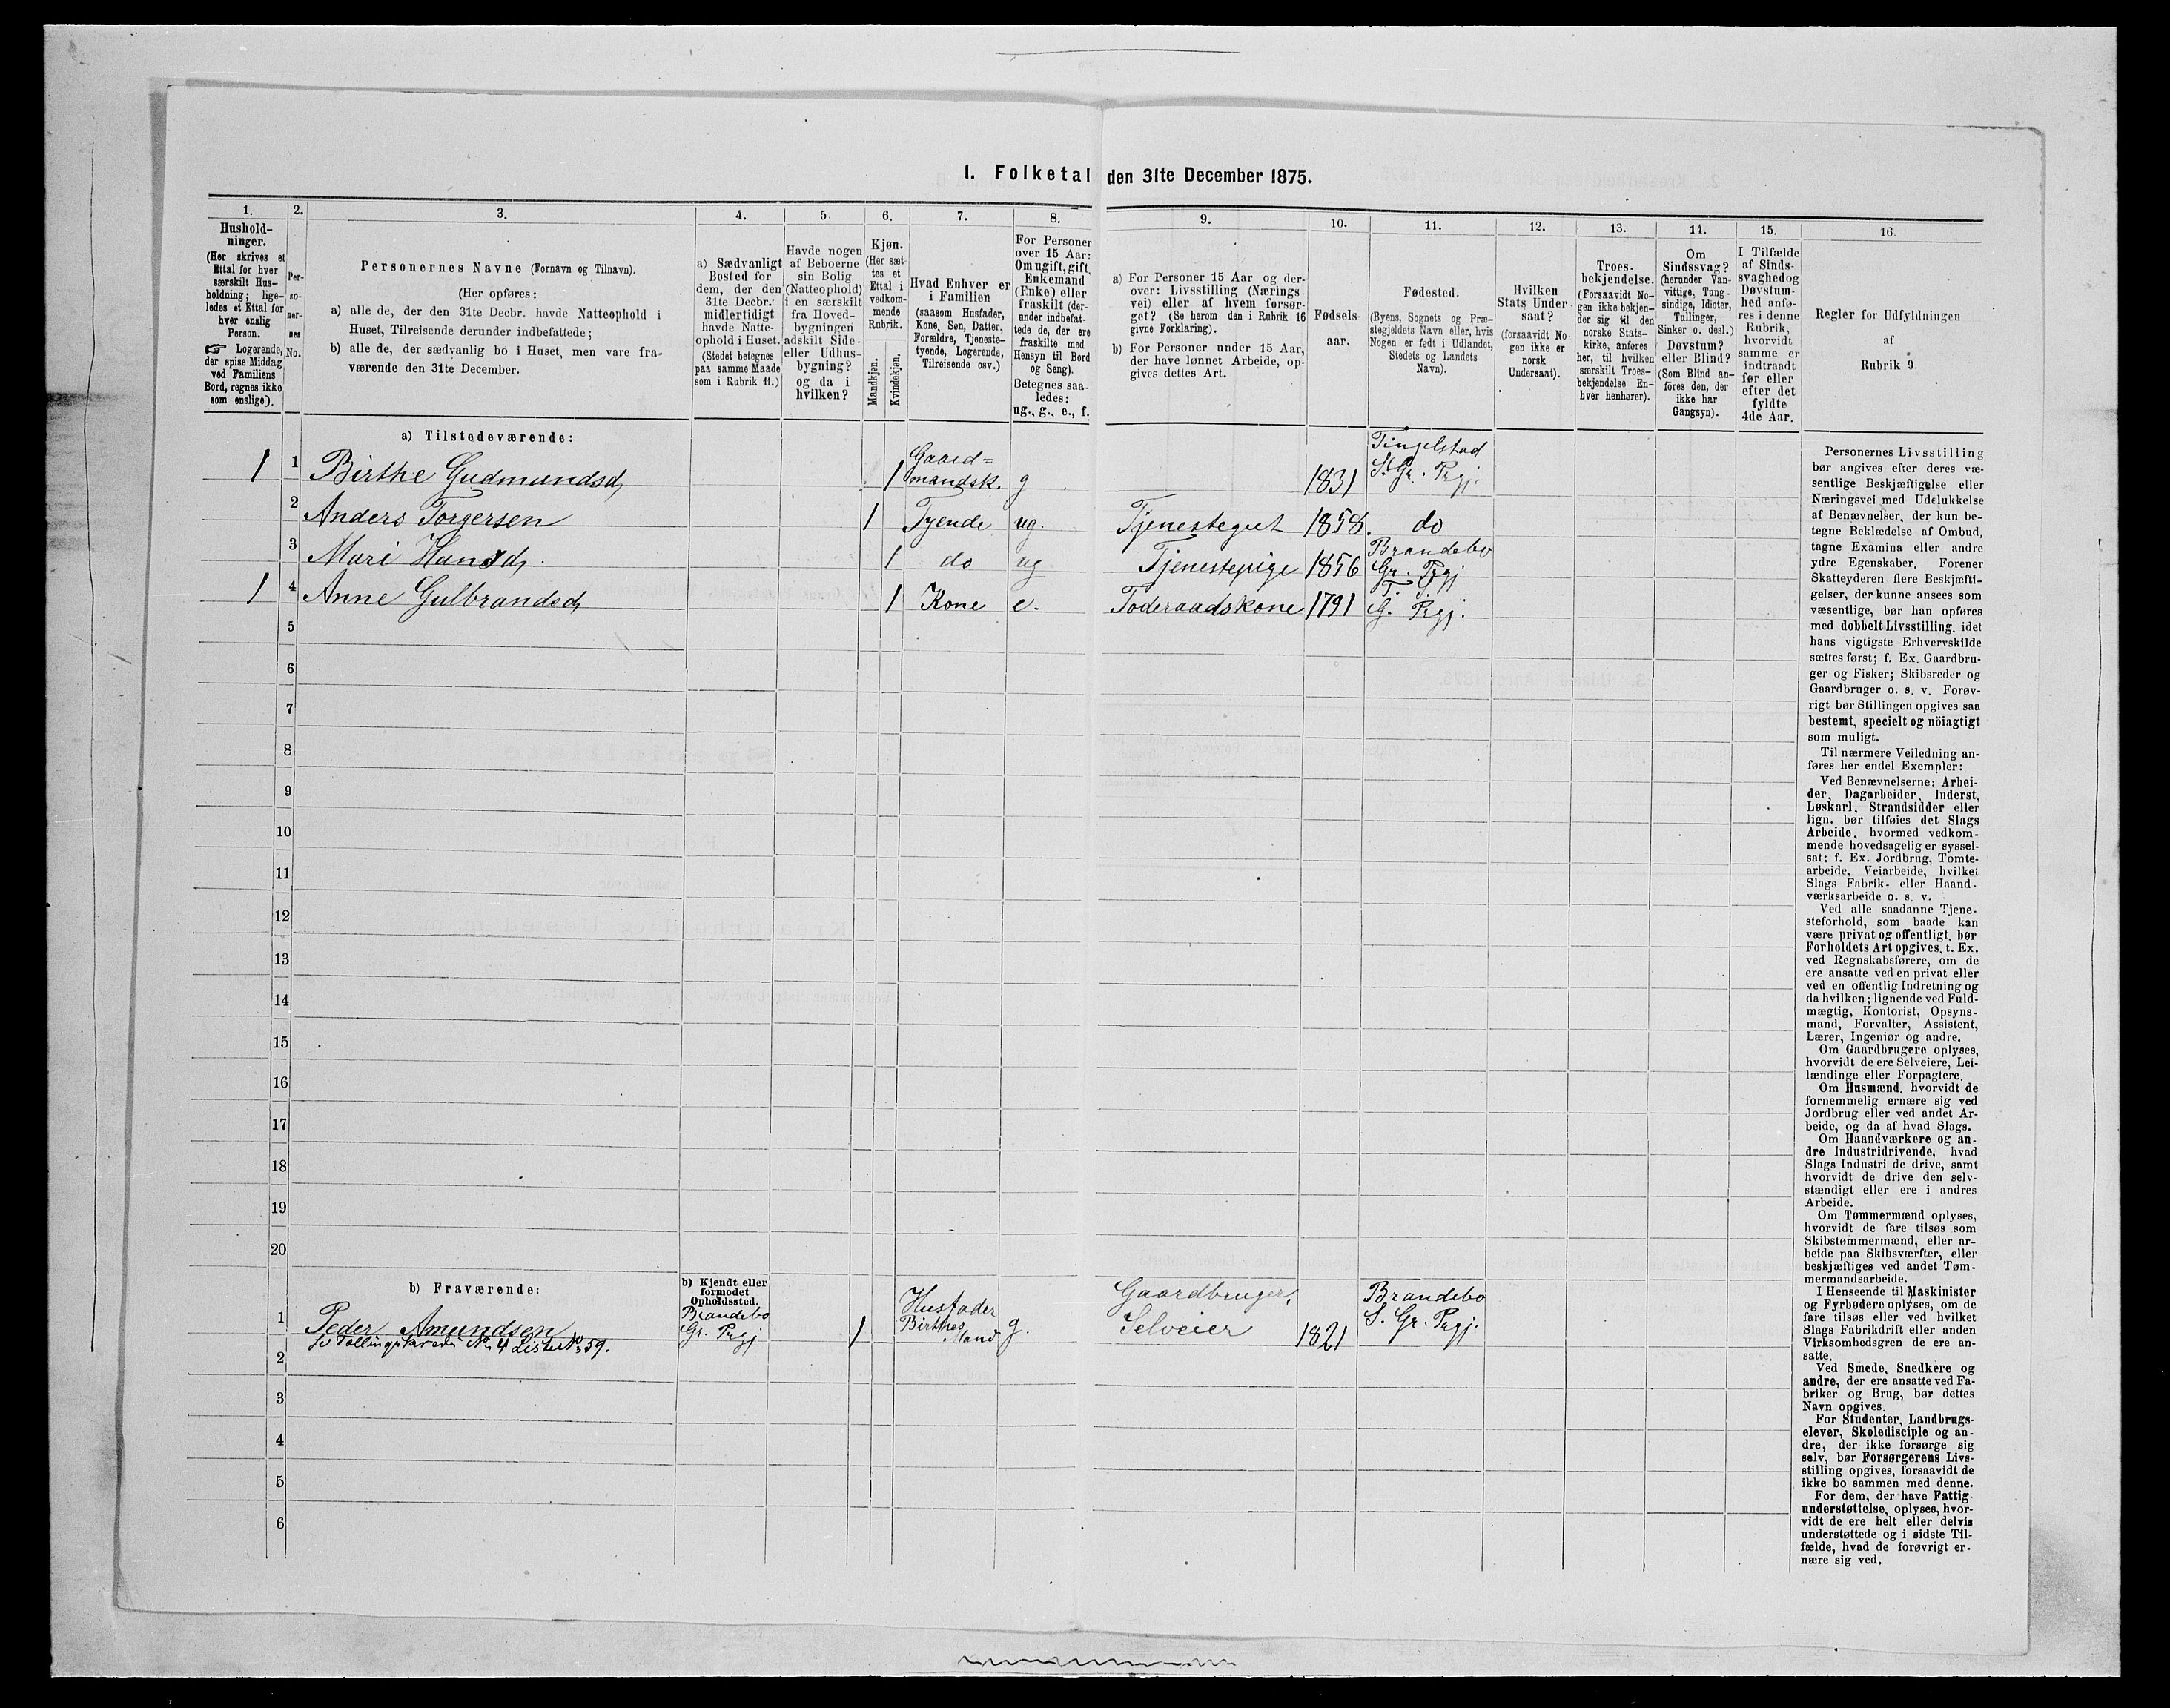 I. Folketal den 31te December 1875.
1.
Hushold-
ninger.
(Her skrives et
Ettal for hver
særskilt Hus-
holdning; lige-
ledes et Ettal for
hver enslig
Person.
☞ Logerende,
der spise Middag
ved Familiens
Bord, regnes ikke
som enslige).
2.
Per-
so-
ner-
nes
No.
3.
Personernes Navne (Fornavn og Tilnavn).
(Her opføres:
a) alle de, der den 31te Decbr. havde Natteophold i
Huset, Tilreisende derunder indbefattede;
b) alle de, der sædvanlig bo i Huset, men vare fra-
værende den 31te December.
4.
a) Sædvanligt
Bosted for
dem, der den
31te Decbr.
midlertidigt
havde Natte-
ophold i Huset.
(Stedet betegnes
paa samme Maade
som i Rubrik 11.)
5.
Havde nogen
af Beboerne
sin Bolig
(Natteophold)
i en særskilt
fra Hoved-
bygningen
adskilt Side-
eller Udhus-
bygning?
og da i
hvilken?
6.
Kjøn.
(Her sæt-
tes et
Ettal i
vedkom-
mende
Rubrik.
Mandkjøn.
Kvindekjøn.
7.
Hvad Enhver er
i Familien
(saasom Husfader,
Kone, Søn, Datter,
Forældre, Tjeneste-
tyende, Logerende,
Tilreisende osv.)
8.
For Personer
over 15 Aar:
Om ugift, gift,
Enkemand
(Enke) eller
fraskilt (der-
under indbefat-
tede de, der ere
fraskilte med
Hensyn til Bord
og Seng).
Betegnes saa-
ledes:
ug., g., e., f.
9.
a) For Personer 15 Aar og der-
over: Livsstilling (Nærings
vei) eller af hvem forsør-
get? (Se herom den i Rubrik 16
givne Forklaring).
b) For Personer under 15 Aar,
der have lønnet Arbeide, op-
gives dettes Art.
10.
Fødsels-
aar.
11.
Fødested.
(Byens, Sognets og Præ-
stegjeldets Navn eller, hvis
Nogen er født i Udlandet,
Stedets og Landets
Navn).
12.
Hvilken
Stats Under-
saat?
(forsaavidt No-
gen ikke er
norsk
Undersaat).
13.
Troes-
bekjendelse.
(Forsaavidt No-
gen ikke bekjen-
der sig til den
norske Stats-
kirke, anføres
her, til hvilken
særskilt Troes-
bekjendelse En-
hver henhører).
14.
Om
Sindssvag?
(herunder Van-
vittige, Tung-
sindige, Idioter,
Tullinger,
Sinker o. desl.)
Døvstum?
eller Blind?
(Som Blind an-
føres den, der
ikke har
Gangsyn).
15.
I Tilfælde
af Sinds-
svaghed og
Døvstum-
hed anfø-
res i denne
Rubrik,
hvorvidt
samme er
indtraadt
før eller
efter det
fyldte
4de Aar.
16.
Regler for Udfyldningen
af
Rubrik 9.
a) Tilstedeværende:
1 1 Birthe Gudmundsd. 1 Gaard=
mandsk. g 1831 Tingelstad
S. Gr. Prgj.
2 Anders Torgersen 1 Tyende ug. Tjenestegut 1858. do
3 Mari Hansd. 1 do ug Tjenestepige 1856 Brandebo
Gr. Prgj
1 4 Anne Gulbrandsd 1 Kone e. Foderaadskone 1791 T. S.
G. Prgj.
5
6
7
8
9
10
11
12
13
14
15
16
17
18
19
20
b) Fraværende:
b) Kjendt eller
formodet
Opholdssted.
1 Peder Amundsen Brandebo
Gr. Prgj 1 Husfader
Birthes
Mand g. Gaardbruger,
Selveier 1821 Brandebo
S. Gr. Prgj.
Tællingskreds No 4 Liste No 59.
2
3
4
5
6
Personernes Livsstilling
bør angives efter deres væ-
sentlige Beskjæftigelse eller
Næringsvei med Udelukkelse
af Benævnelser, der kun be-
tegne Beklædelse af Ombud,
tagne Examina eller andre
ydre Egenskaber. Forener
Skatteyderen flere Beskjæfti-
gelser, der kunne ansees som
væsentlige, bør han opføres
med dobbelt Livsstilling, idet
hans vigtigste Erhvervskilde
sættes først; f. Ex. Gaardbru-
ger og Fisker; Skibsreder og
Gaardbruger o. s. v. Forøv-
rigt bør Stillingen opgives saa
bestemt, specielt og nöiagtigt
som muligt.
Til nærmere Veiledning an-
føres her endel Exempler:
Ved Benævnelserne: Arbei-
der, Dagarbeider, Inderst,
Løskarl, Strandsidder eller
lign. bør tilføies det Slags
Arbeide, hvormed vedkom-
mende hovedsagelig er syssel-
sat; f. Ex. Jordbrug, Tomte-
arbeide, Veiarbeide, hvilket
Slags Fabrik- eller Haand-
værksarbeide o. s. v.
Ved alle saadanne Tjene-
steforhold, som baade kan
være privat og offentligt, bør
Forholdets Art opgives, t. Ex.
ved Regnskabsførere, om de
ere ansatte ved en privat eller
ved en offentlig Indretning og
da hvilken; lignende ved Fuld-
mægtig, Kontorist, Opsyns-
mand, Forvalter, Assistent,
Lærer, Ingeniør og andre.
Om Gaardbrugere oplyses,
hvorvidt de ere Selveiere, Lei-
lændinge eller Forpagtere.
Om Husmænd, hvorvidt de
fornemmelig ernære sig ved
Jordbrug eller ved andet Ar-
beide, og da af hvad Slags.
Om Haandværkere og an-
dre Industridrivende, hvad
Slags Industri de drive, samt
hvorvidt de drive den selv-
stændigt eller ere i andres
Arbeide.
Om Tømmermænd oplyses,
hvorvidt de fare tilsøs som
Skibstømmermænd, eller ar-
beide paa Skibsværfter, eller
beskjæftiges ved andet Tøm-
mermandsarbeide.
I Henseende til Maskinister
og Fyrbødere oplyses, om de
fare tilsøs eller ved hvilket
Slags Fabrikdrift eller anden
Virksomhedsgren de ere an-
satte.
Ved Smede, Snedkere og
andre, der ere ansatte ved Fa-
briker og Brug, bør dettes
Navn opgives.
For Studenter, Landbrugs-
elever, Skoledisciple og an-
dre, der ikke forsørge sig
selv, bør Forsørgerens Livs-
stilling opgives, forsaavidt de
ikke bo sammen med denne.
For dem, der have Fattig-
understøttelse, oplyses, hvor-
vidt de ere helt eller delvis
understøttede og i sidste Til-
fælde, hvad de forøvrigt er-
nære sig ved.